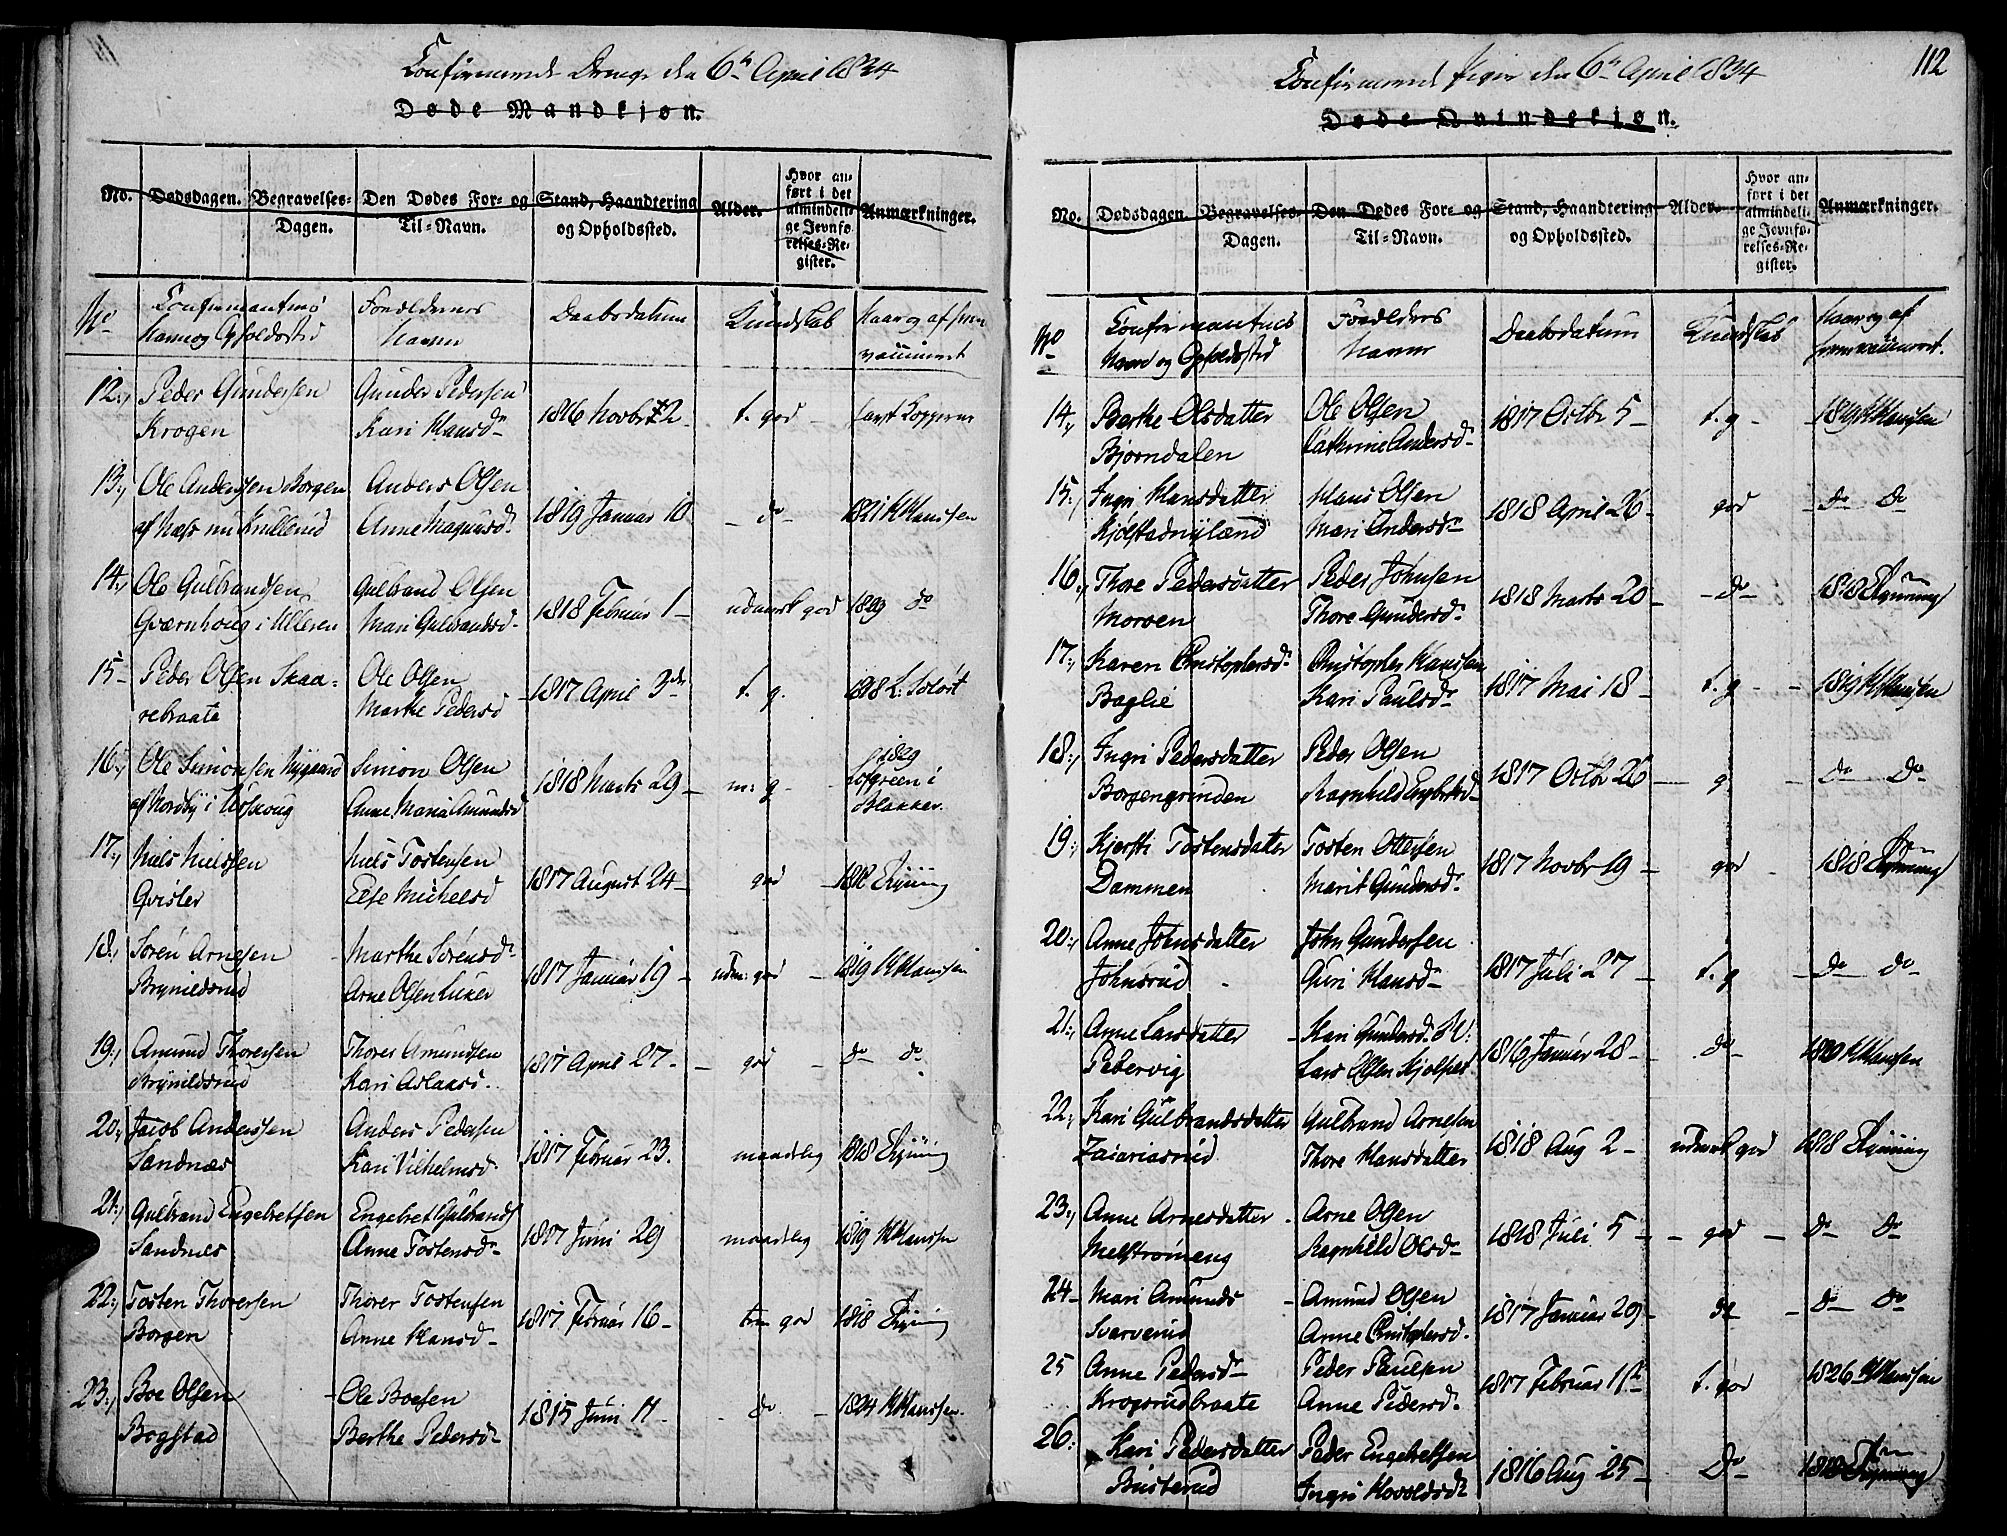 Confirmerede Drenge den 6te April 1834
Døde Mandkjøn.
No. Dødsdagen. Begravelses- Dagen. Den Dødes For- og Til-Navn. Stand, Haandtering og Opholdssted. Alder. Hvor anført i det almindelige Jevnførelses-Register. Anmærkninger.
No Confirmantens Navn og Opholdssted Forældrenes Navne Daabsdatum Kundskab Naar og af hvem vaccineret
12, Peder Gundersen Gunder Pedersen 1816 Novbr 12 t. god havt Kopperne
Krogen Kari Hansd
13, Ole Anderssen Borgen Anders Olsen 1819 Januar 10 do 1821 H Hanssen
af Næss nu Krullerud Anne Magnusd
14, Ole Gulbrandsen Gulbrand Olsen 1818 Februar 1 udmærk god 1829 do
Qværnhoug i Ulleren Mari Gulbrandsd
15 Peder Olsen Skaa- Ole Olsen 1817 April 3de t. g. 1818
rebraata Marthe Pedersd
16, Ole Simonsen Nygaard Simon Olsen 1818 Marts 29 m: g 1829 Løfgreen i Blakker
af Nordby i Urskoug Anne Maria Amundsd
17, Niels Nielssen Niels Tostensen 1817 August 24 god 1818
Qvisler Else Michelsd
18, Søren Arnesen Marthe Sørensd 1817 Januar 19 udm: god 1819 H Hanssen
Brynildsrud Arne Olsen
19, Amund Thorersen Thorer Amundsen 1817 April 27 god do do
Brynildsrud Kari Aslaksd.
20, Jacob Anderssen Anders Pedersen 1817 Februar 23. maadelig 1818
Sandnæs Kari Vilhelmsd
21, Gulbrand Engebretsen Engebret Gulbrands 1817 Juni 29 maadelig 1819 H Hanssen
Sandnes Anne Tostensd
22, Tosten Thorersen Thorer Tostensen 1817 Februar 16 tm god 1818
Borgen Anne Hansd
23, Boe Olsen Ole Boesen 1815 Juni 11 do 1824 H Hanssen
Bogstad Berthe Pedersd
112
Confirmerede Piger den 6te April 1834
Døde Qvindekjøn.
No. Dødsdagen. Begravelses- Dagen. Den Dødes For- og Til-Navn. Stand, Haandtering og Opholdssted. Alder. Hvor anført i det almindelige Jevnførelses-Register. Anmærkninger.
No Confirmantens Navn og Opholdssted Forældres Navne Daabsdatum Kundskab Naar og af hvem vaccineret.
14, Berthe Olsdatter Ole Olsen 1817 Octbr 5 t. g 1819 H Hanssen
Bjørndalen Cathrine Andersd
15, Ingri Hansdatter Hans Olsen 1818 April 26 god do do
Kjølstadnylænd Mari Andersd
16, Thore Pedersdatter Peder Johnsen 1818 Marts 20 do 1818
Morven Thore Gundersd
17, Karen Christophersd Christopher Hanssen 1817 Mai 18 t. g 1819 H Hanssen
Baglie Kari Paulsd
18, Ingri Pedersdatter Peder Olsen 1817 Octbr 26 g do do
Borgengrinden Ragnhild Engebretsd
19, Kjersti Tostensdatter Tosten Ottersen 1817 Novbr 19 god 1818
Dammen Marit Gundersd
20, Anne Johnsdatter John Gundersen 1817 Juli 27 t. g do do
Johnsrud Guri Hansd
21, Anne Larsdatter Kari Gundersd. 1816 Januar 28 do 1820 H Hanssen
Pedervig Lars Olsen
22, Kari Gulbrandsdatter Gulbrand Arnesen 1818 Aug 2 udmærk god 1818
Zachariasrud Thore Hansdatter
23, Anne Arnesdatter Arne Olsen 1818 Juli 5 god do do
Melstrømeng Ragnhild Olsd
24 Mari Amunds Amund Olsen 1817 Januar 29 do do do
Svarverud Anne Christophersd.
25 Anne Pedersd Peder Paulsen 1817 Februar 11te t. god 1826 H Hanssen
Krogsrudbraate Anne Pedersd.
26. Kari Pedersdatter Peder Engebretsen 1816 Aug 25 do 1818
Busterud Ingri Hovelsd